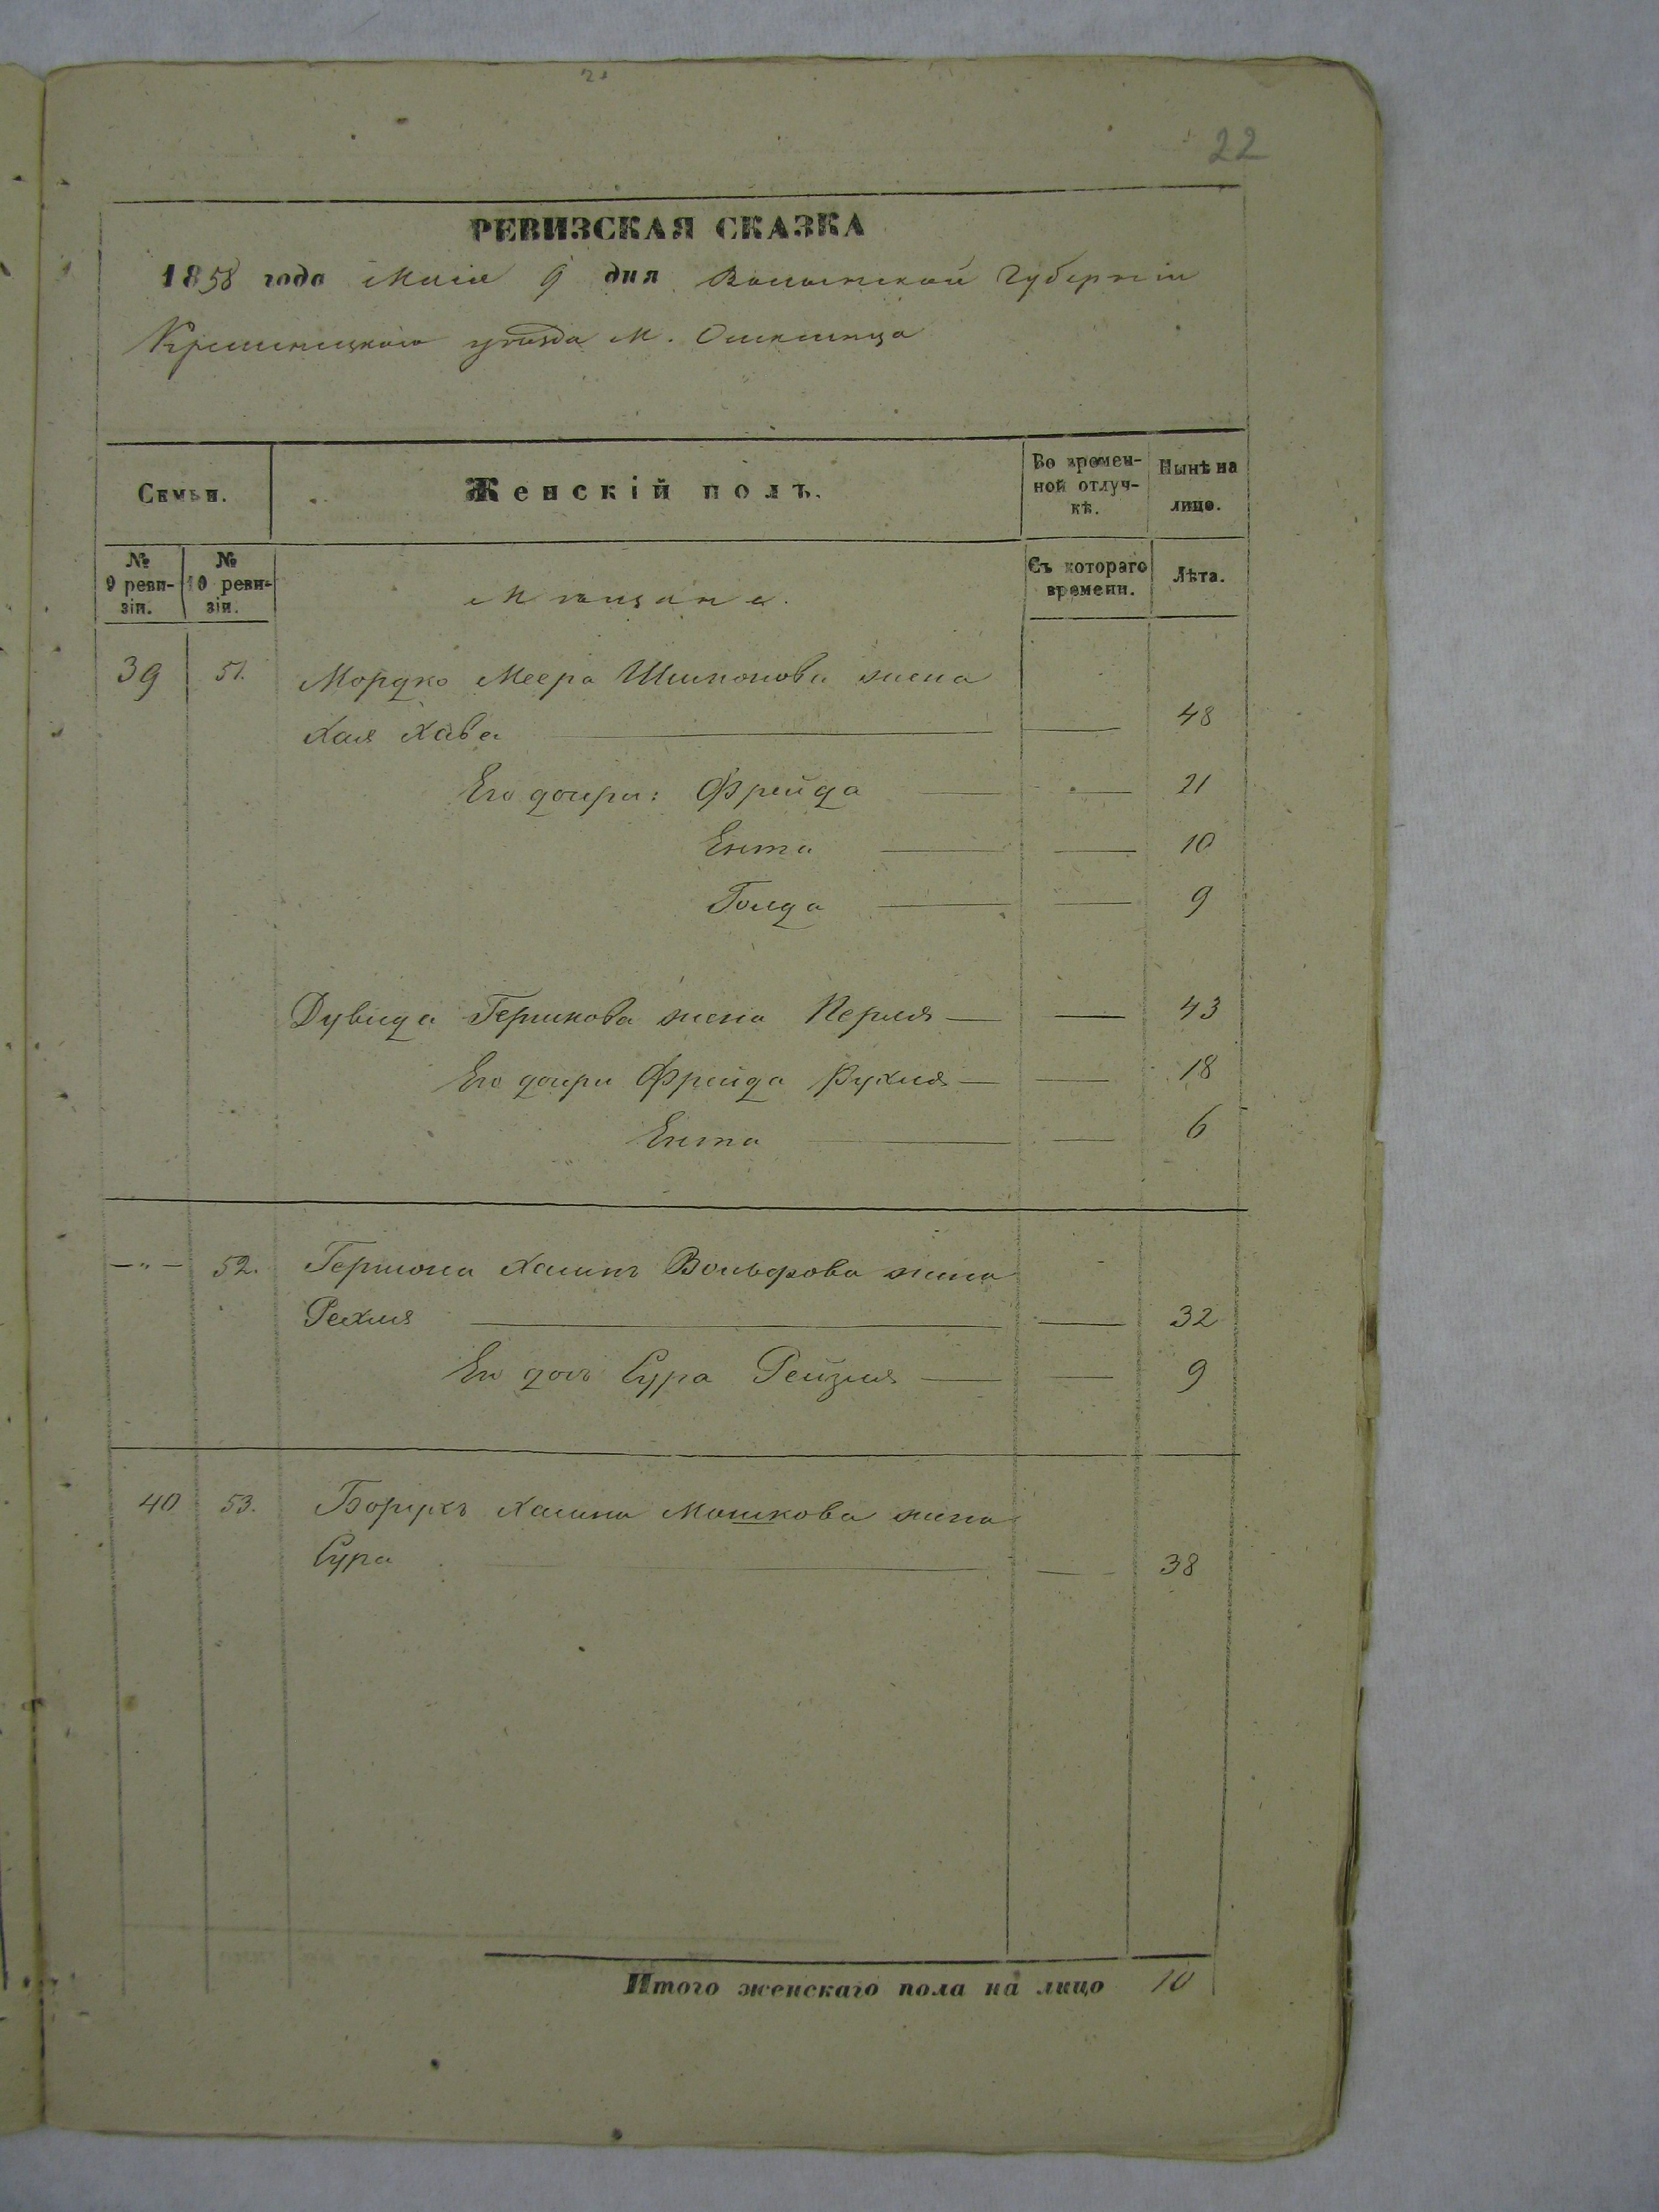 22
РЕВИЗСКАЯ СКАЗКА
1858 года Маія 9 дня Волынской Губерніи
Кременецкаго уѣзда М.
Семьи.
Женскій полъ.
Во времен-
ной отлуч-
кѣ.
Нынѣ на
лицо.
№
9 реви-
зіи.
№
10 реви-
зіи.
Мѣщане.
Съ котораго
времени.
Лѣта.
39 51. Мордко Меера Шимонова жена
Хая Хава — — 48
Его дочери: Фрейда — — 21
Ента — — 10
Голда — — 9
Дувида Гершкова жена Перля — — 43
Его дочери Фрейда Рухля — — 18
Ента — — 6
—"— 52. Гершона Хаимъ Вольфова жена
Рехля — — 32
Его дочь Сура Рейзля — — 9
40 53. Борухъ Хаима Мошкова жена
Сура — — 38
Итого женскаго пола на лицо 10